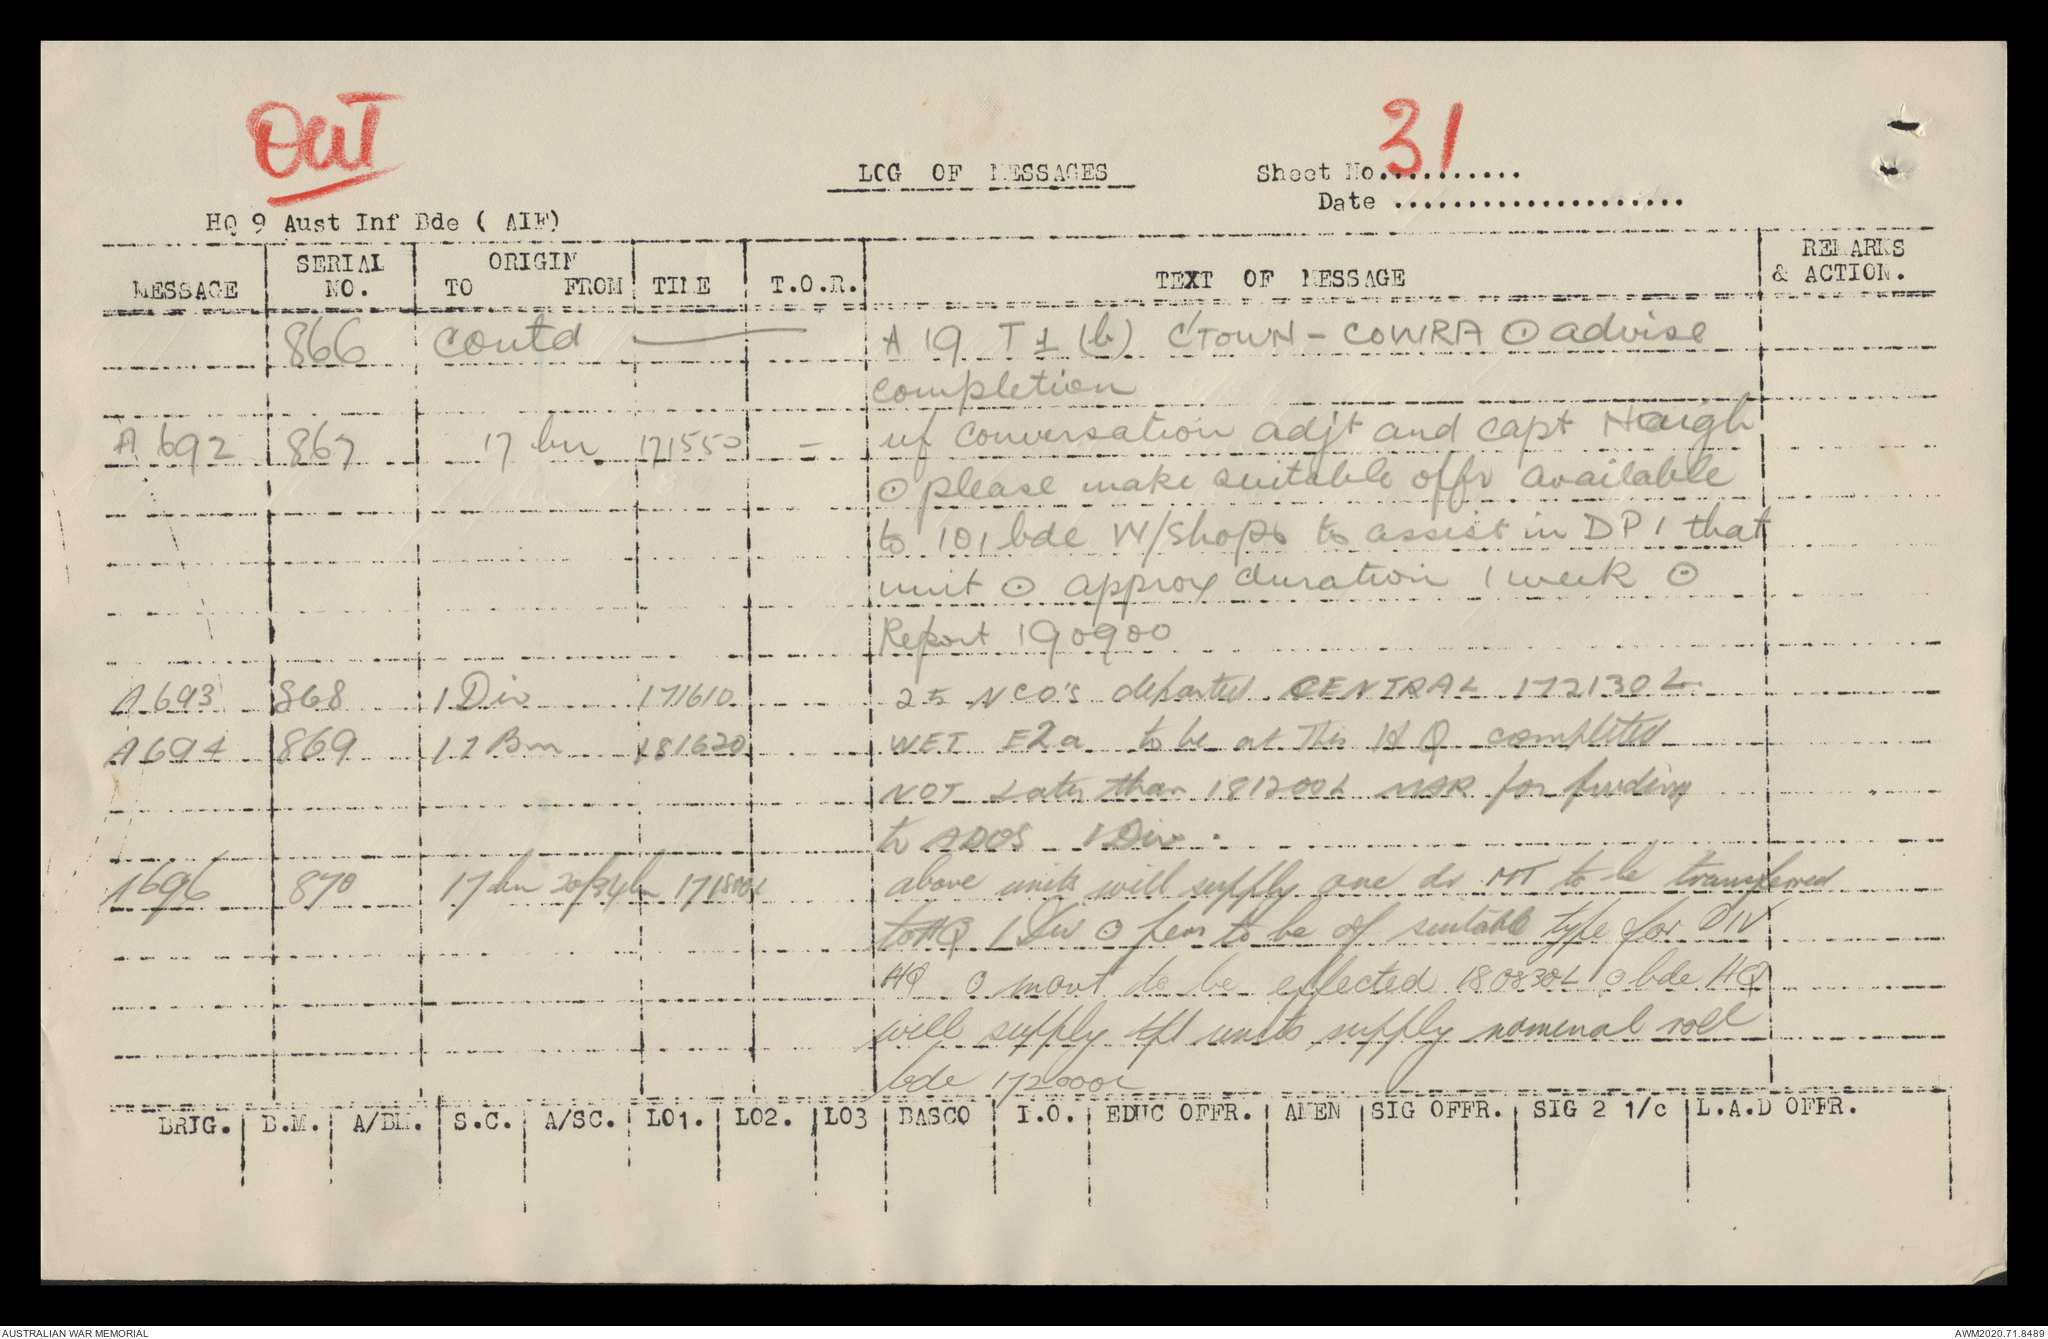 OUT
31
LOG OF MESSAGES
Sheet No...........
Date ....................
HQ 9 Aust Inf Bde ( AIF)
MESSAGE SERIAL NO. ORIGIN TO FROM TIME T.O.R. TEXT OF MESSAGE REMARKS & ACTION.
866 contd — A 19 T 1 (b) C'TOWN - COWRA ⊙ advise
completion
A 692 867 17 bn 171550 - uf conversation adjt and capt Haigh
⊙ please make suitable offr available
to 101 bde W/Shops to assist in DP1 that
unit ⊙ approx duration 1 week ⊙
Report 190900
A 693 868 1 Div 171610 25 NCO's departed CENTRAL 172130L.
A 694 869 17 Bn 181620 WET E2a to be at This HQ completed
NOT Later than 181200L for
to ADOS 1 Div.
A 696 870 17 bn 20/34 bn 171800L above units will supply one dr MT to be transferred
to HQ 1 Div ⊙ pers to be of suitable type for DIV
HQ ⊙ movt to be effected 180830L ⊙ bde HQ
will supply tpt units supply nomenal roll
bde 172000L
BRIG. B.M. A/BM. S.C. A/SC. LO1. LO2. LO3 BASCO I.O. EDUC OFFR. AMEN SIG OFFR. SIG 2 1/c L.A.D OFFR.
AUSTRALIAN WAR MEMORIAL
AWM2020.71.8489